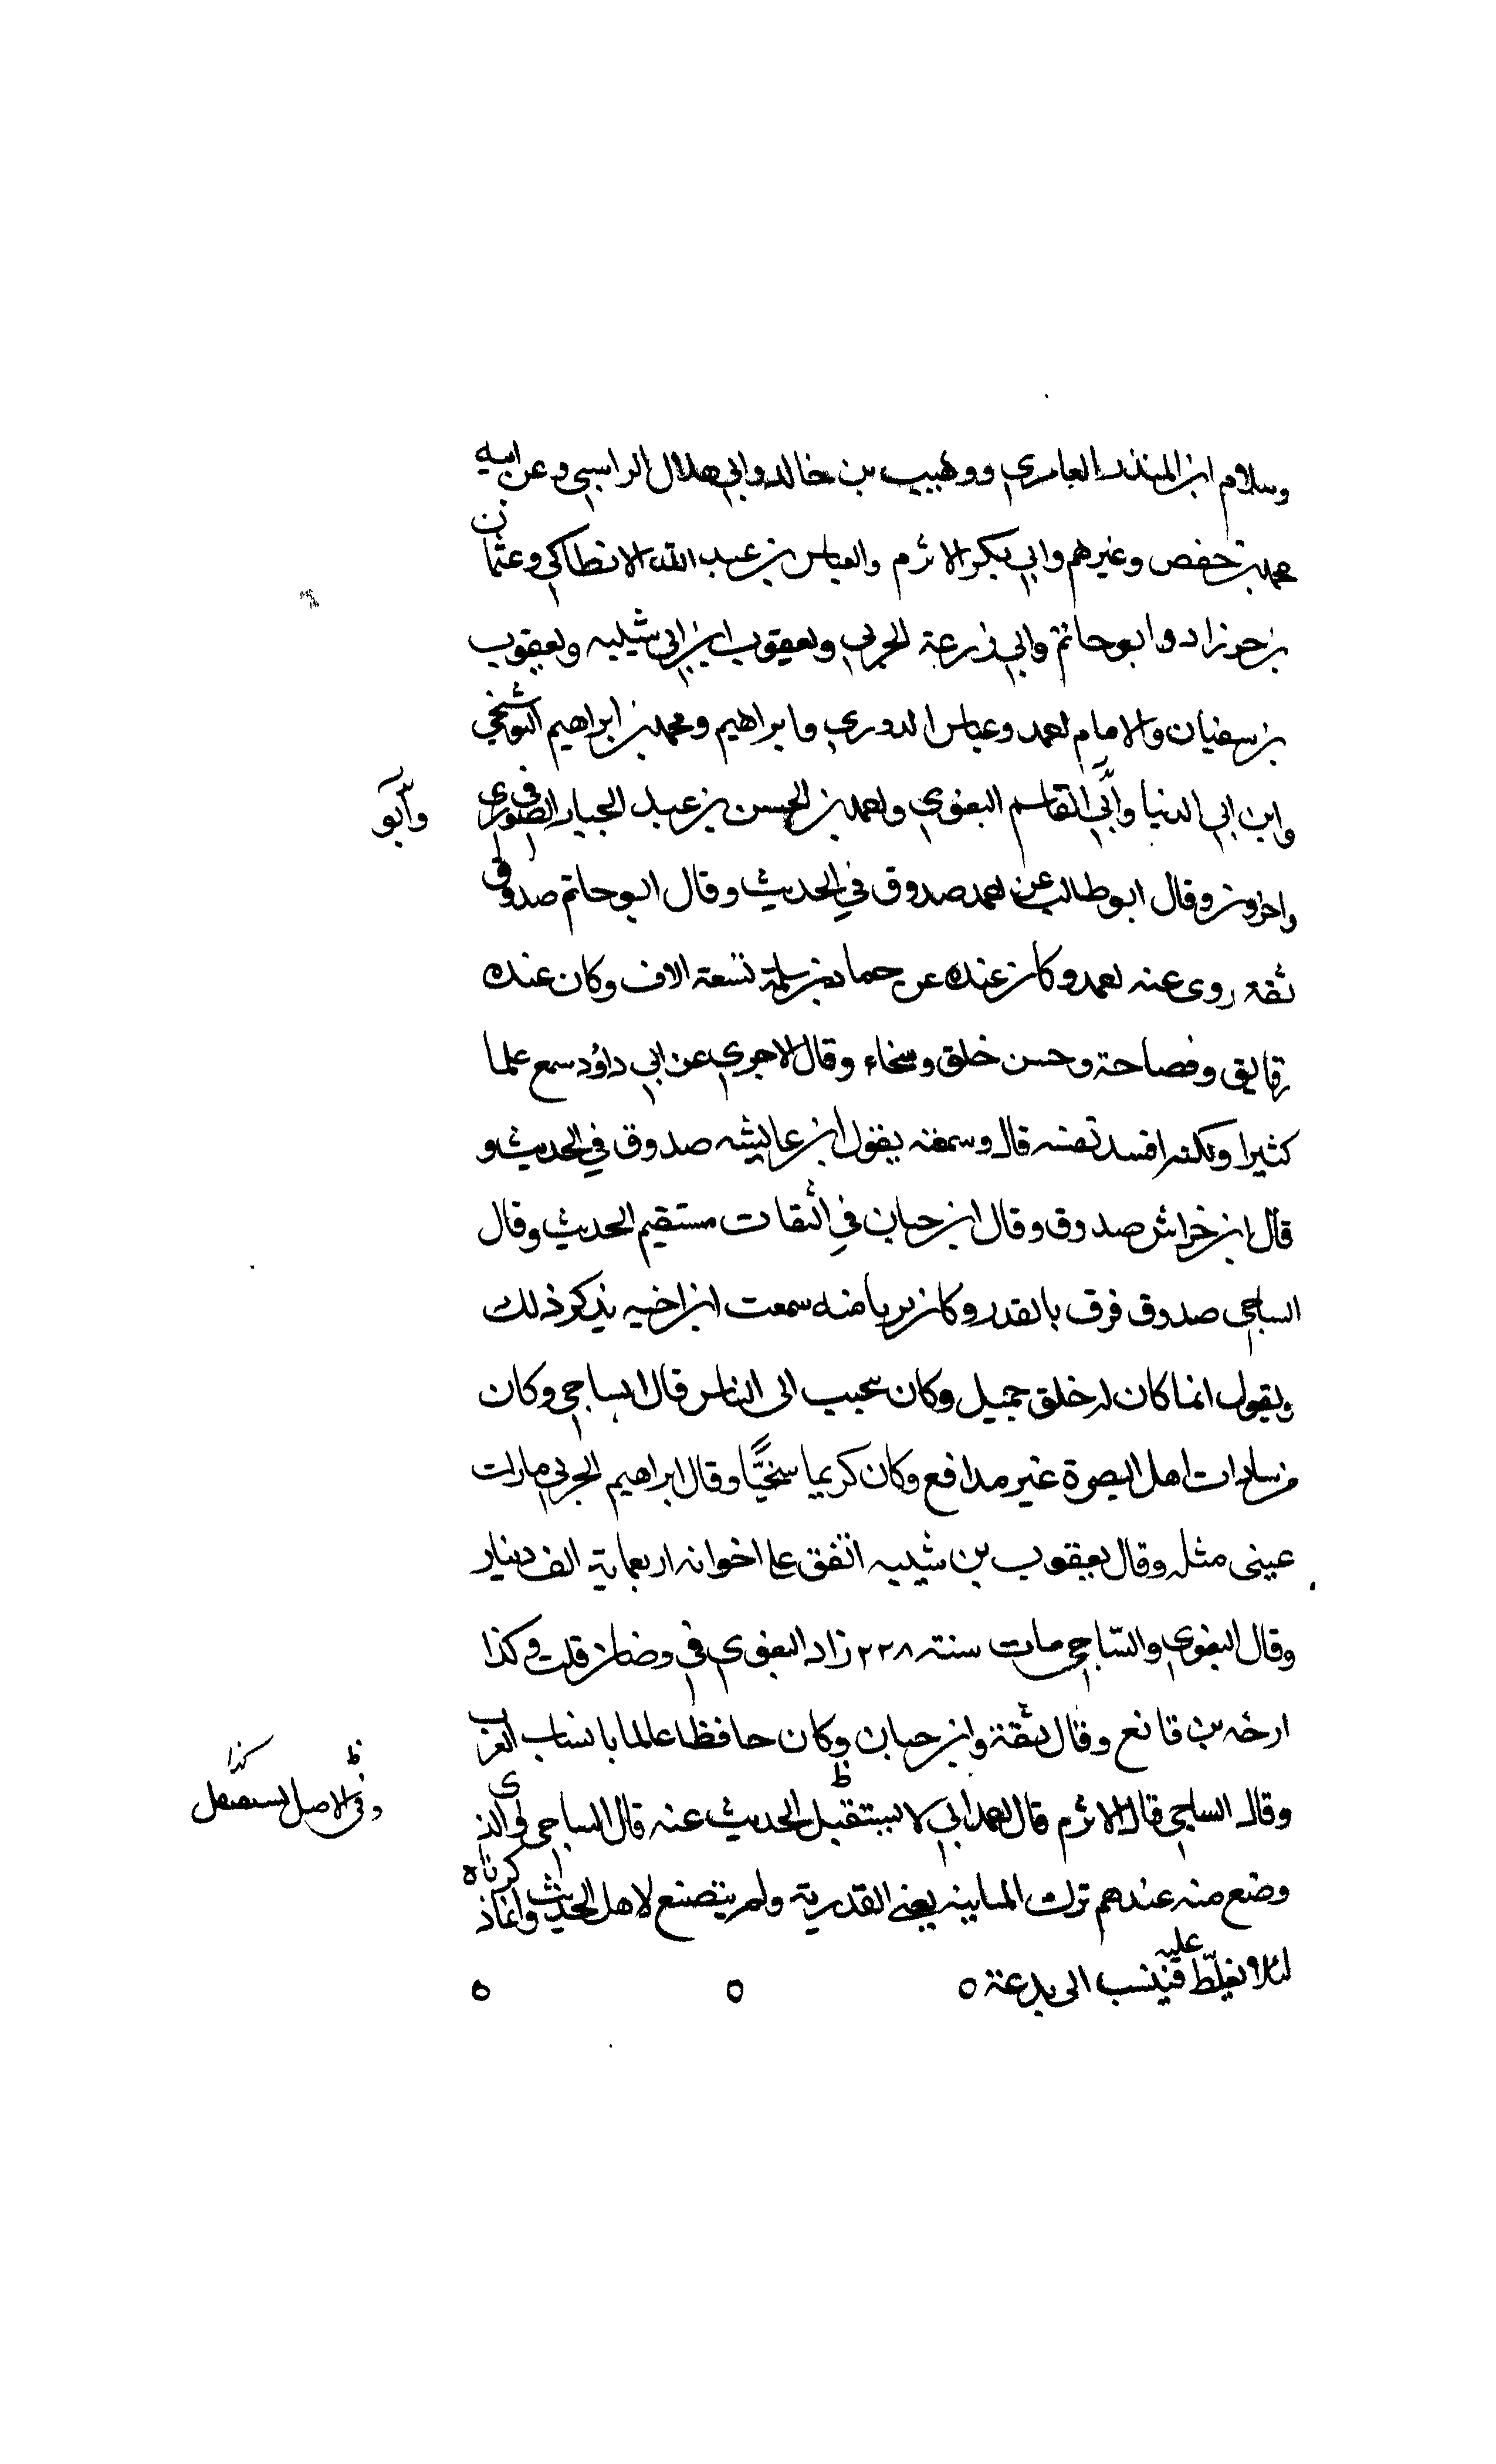 وسلام ابن المنذر العامري ووهيب بن خالد وابي هلال الراسبي وعن ابيه
محمد بن حفص وغيرهم وابي بكر الاثرم والعباس بن عبد الله الانطاكي وعثمان
بن خرزاد وابو حاتم وابي زرعة الحربي ويعقوب ابن ابي شيبه ويعقوب
بن سفيان والامام احمد وعباس الدوري وابراهيم ومحمد بن ابراهيم البوشنجي
وابن ابي الدنيا وابي القاسم البغوي واحمد بن الحسن بن عبد الجبار الصوفي
وأبو
واخرون وقال ابو طالب عن احمد صدوق في الحديث وقال ابو حاتم صدوق
ثقة روى عنه احمد وكان عنده عن حماد بن سلمة تسعة الاف وكان عنده
رقايق وفصاحة وحسن خلق وسخاء وقال الاجري عن ابي داؤد سمع علما
كثيرا ولكنه افسد نفسه قال وسمعته يقول ابن عايشه صدوق في الحديث و
قال ابن خراش صدوق وقال ابن حبان في الثقات مستقيم الحديث وقال
الساجي صدوق قرف بالقدر وكان بريا منه سمعت ابن اخيه يذكر ذلك
ويقول انما كان له خلق جميل وكان يحبب الى الناس قال الساجي وكان
من سادات اهل البصرة غير مدافع وكان كريما سخيًّا وقال ابراهيم الحربي ما رات
عيني مثله وقال يعقوب بن شيبه انفق على اخوانه اربعماية الف دينار
وقال البغوي والساجي مات سنة ٢٢٨ زاد البغوي في رمضان قلت وكذا
ارخه بن قانع وقال ثقة وابن حبان وكان حافظا عالما بانساب العرب
وقال الساجي قال الاثرم قال احمد ابي لا يستقبل الحديث عنه قال الساجي والذى
وفي الاصل كذا
وضع منه عندهم ترك المباينه يعني القدرية ولم يتصنع لاهل الحديث وانما ذكرناه
لئلا يغلّط عليه فينسب الى بدعة ه ه ه